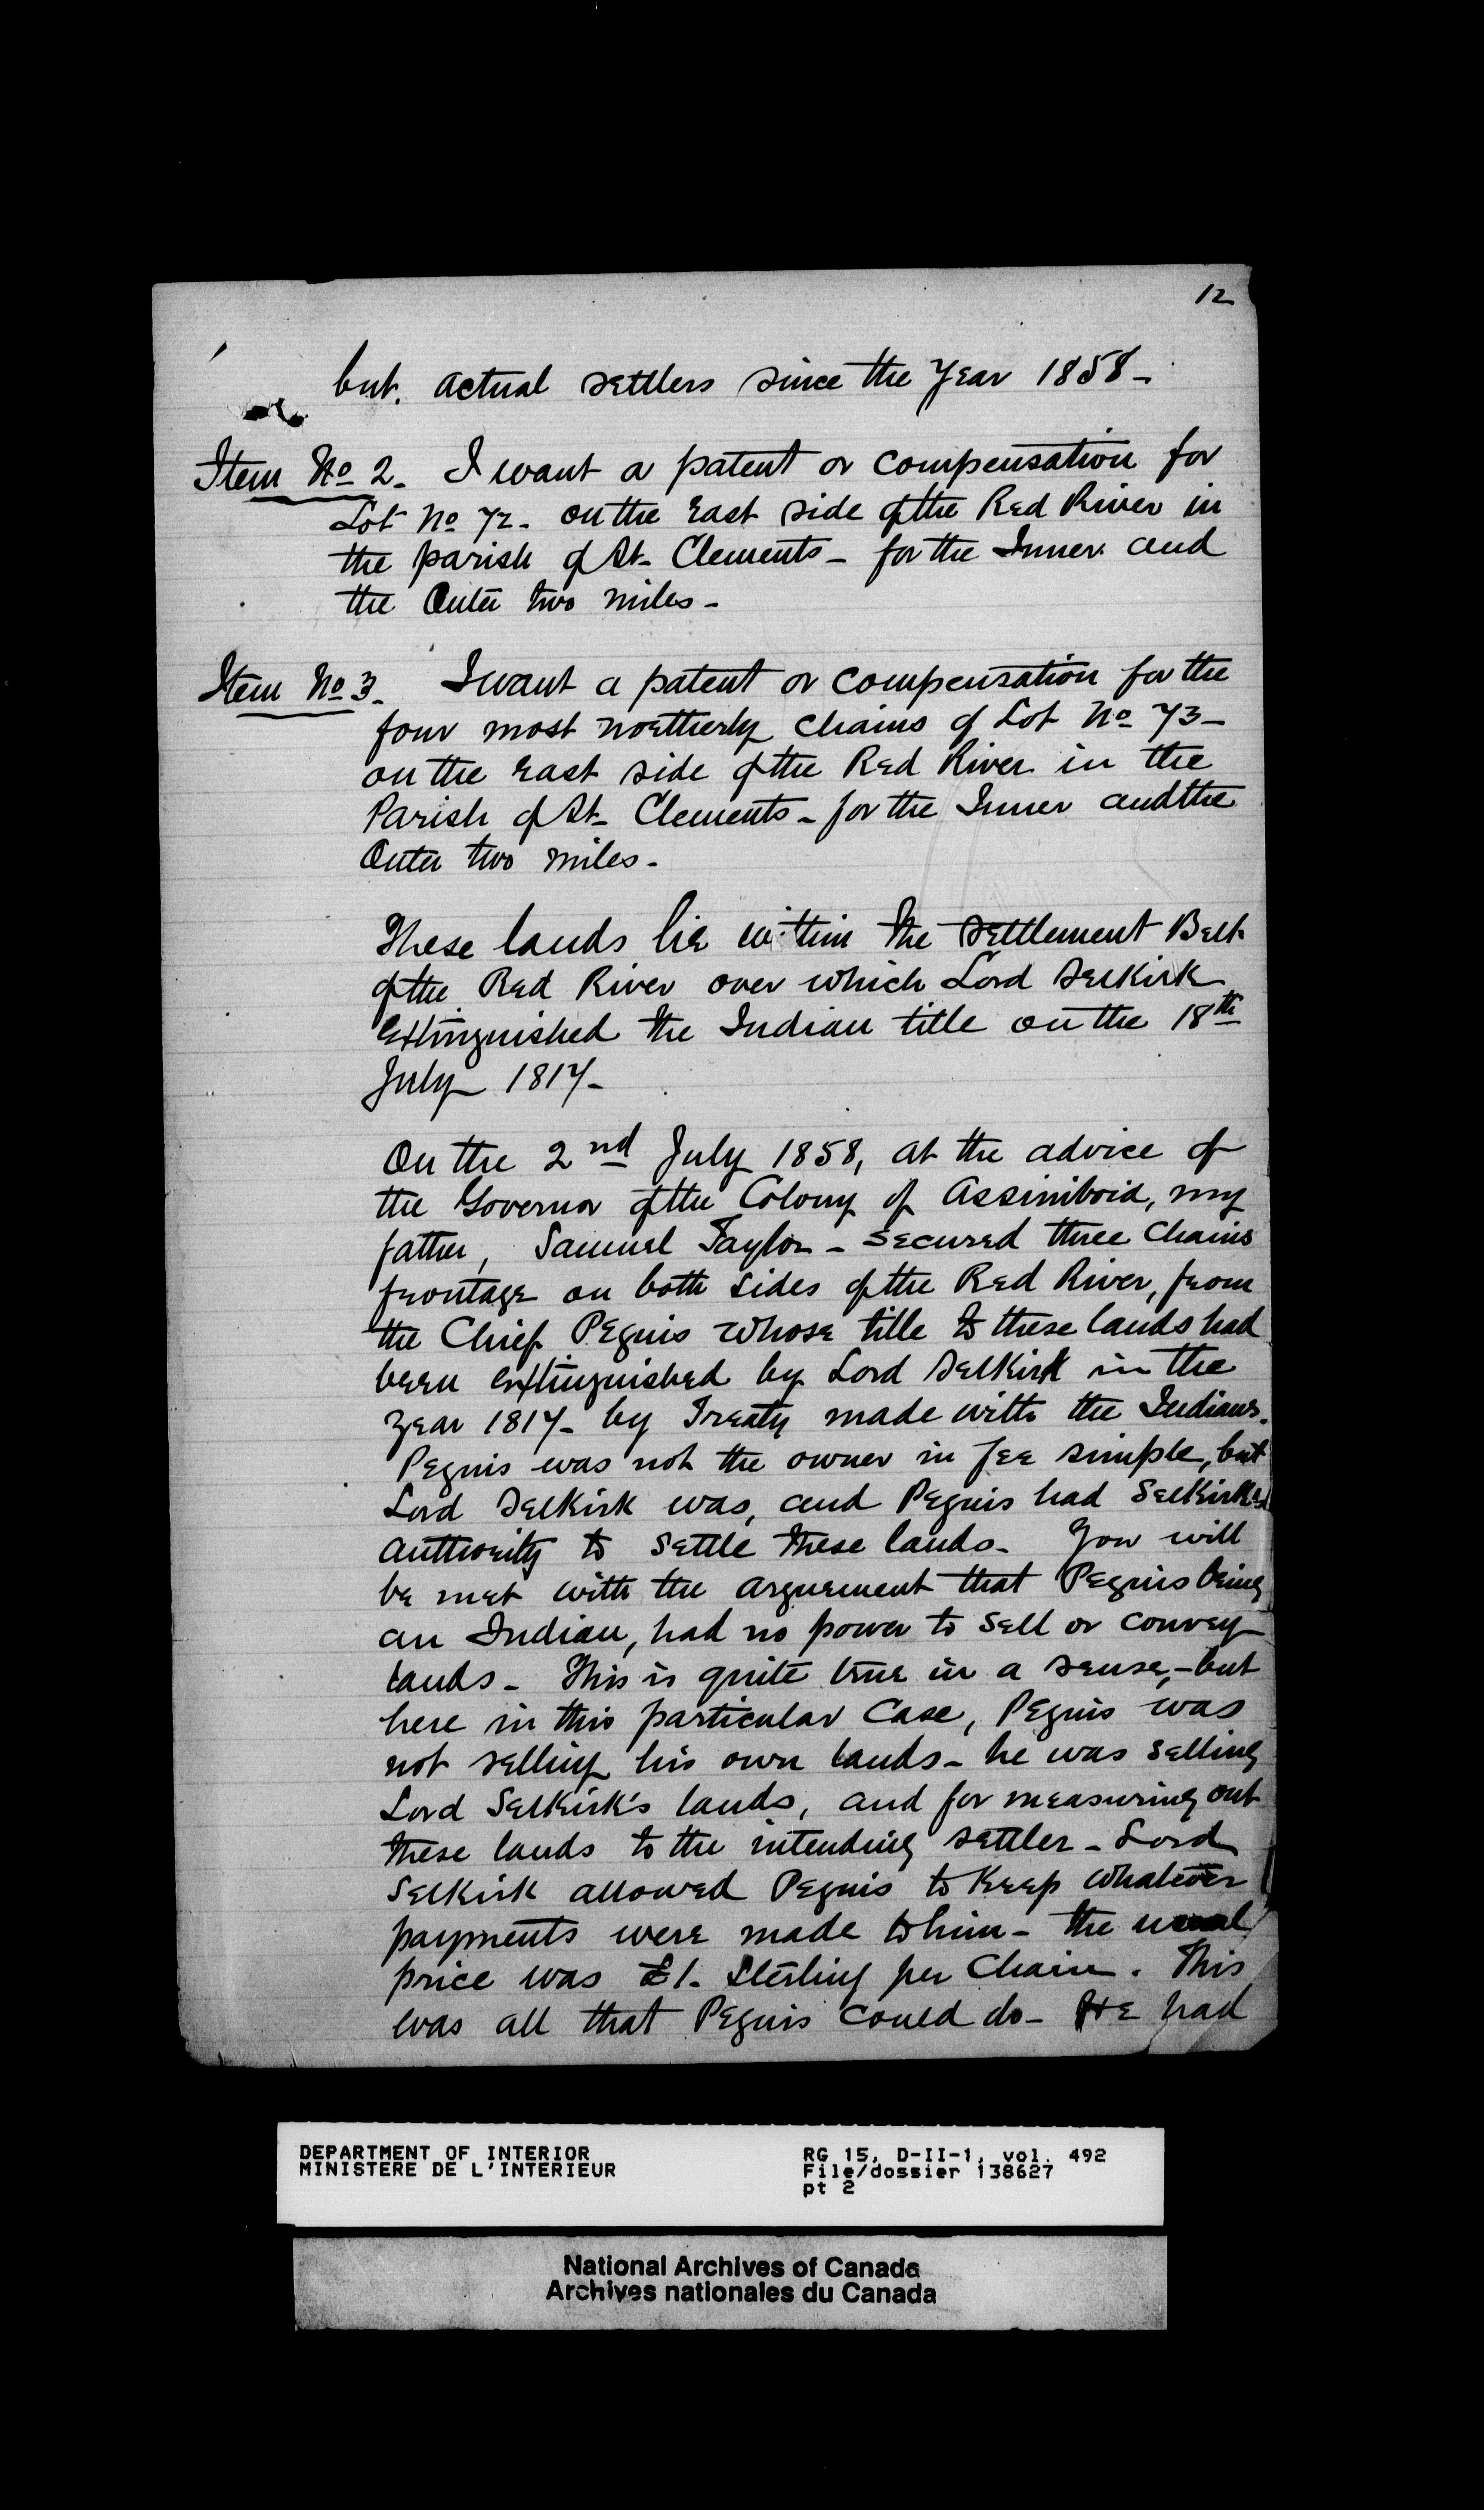 12
but. actual settlers since the Year 1858-
Item No 2. I want a patent or compensation for
Lot No 72. on the East side of the Red River in
the parish of St. Clements - for the Inner and
the Outer two miles -
Item No 3. I want a patent or compensation for the
four most northerly chains of Lot No 73-
on the East side of the Red River in the
Parish of St. Clements - for the Inner and the
Outer two miles -
These lands lie within the settlement Belt
of the Red River over which Lord Selkirk
extinguished the Indian title on the 18th
July 1817-
On the 2nd July 1858, at the advice of
the Governor of the Colony of Assiniboia, my
father, Samuel Taylor - secured three Chains
frontage on both sides of the Red River, from
the Chief Peguis whose title to these lands had
been extinguished by Lord Selkirk in the
year 1817- by Treaty made with the Indians.
Peguis was not the owner in fee simple, but
Lord Selkirk was, and Peguis had Selkirk's
authority to settle these lands - You will
be met with the arguement that Peguis being
an Indian, had no power to sell or convey
lands - This is quite true in a sense, - but
here in this particular case, Peguis was
not selling his own lands - he was selling
Lord Selkirk's lands, and for measuring out
these lands to the intending settler - Lord
Selkirk allowed Peguis to keep whatever
payments were made to him - the usual
price was £1. Sterling per Chain. This
was all that Peguis could do - He had
DEPARTMENT OF INTERIOR
MINISTERE DE L'INTERIEUR
RG 15, D-II-1, vol. 492
File/dossier 138627
pt 2
National Archives of Canada
Archives nationales du Canada